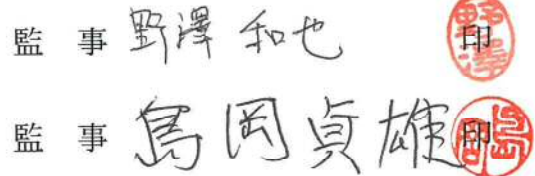 監 事 野澤 和也 印
監 事 島岡貞雄 印